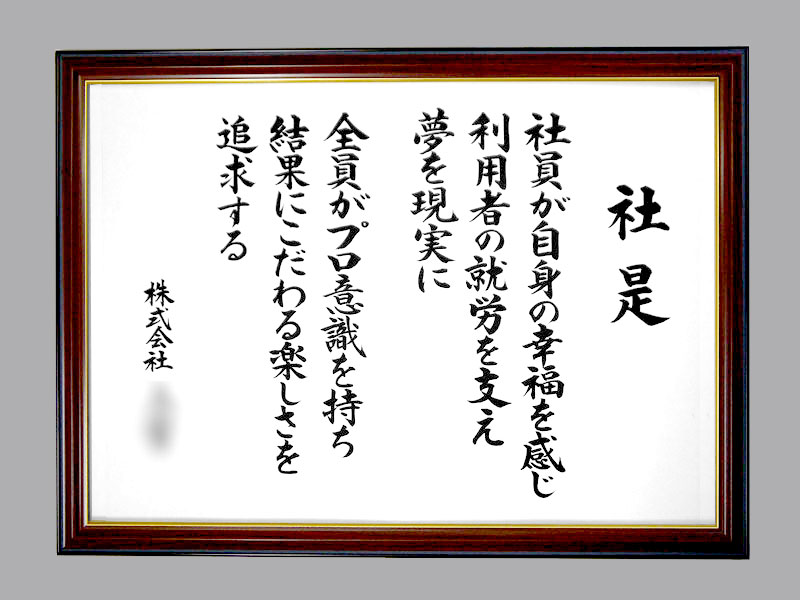 社是
社員が自身の幸福を感じ
利用者の就労を支え
夢を現実に
全員がプロ意識を持ち
結果にこだわる楽しさを
追求する
株式会社